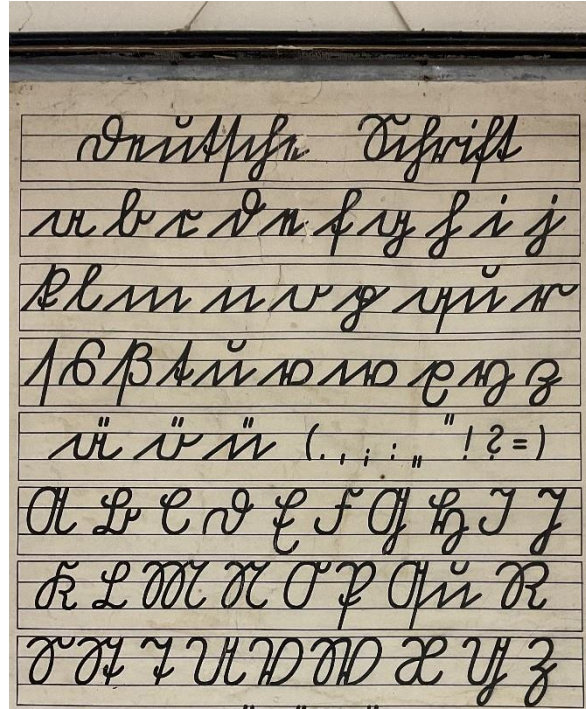 Deutsche Schrift
a b c d e f g h i j
k l m n o p qu r
ſ s ß t u v w x y z
ä ö ü ( . , ; : „ “ ! ? = )
A B C D E F G H I J
K L M N O P Qu R
S St T U V W X Y Z